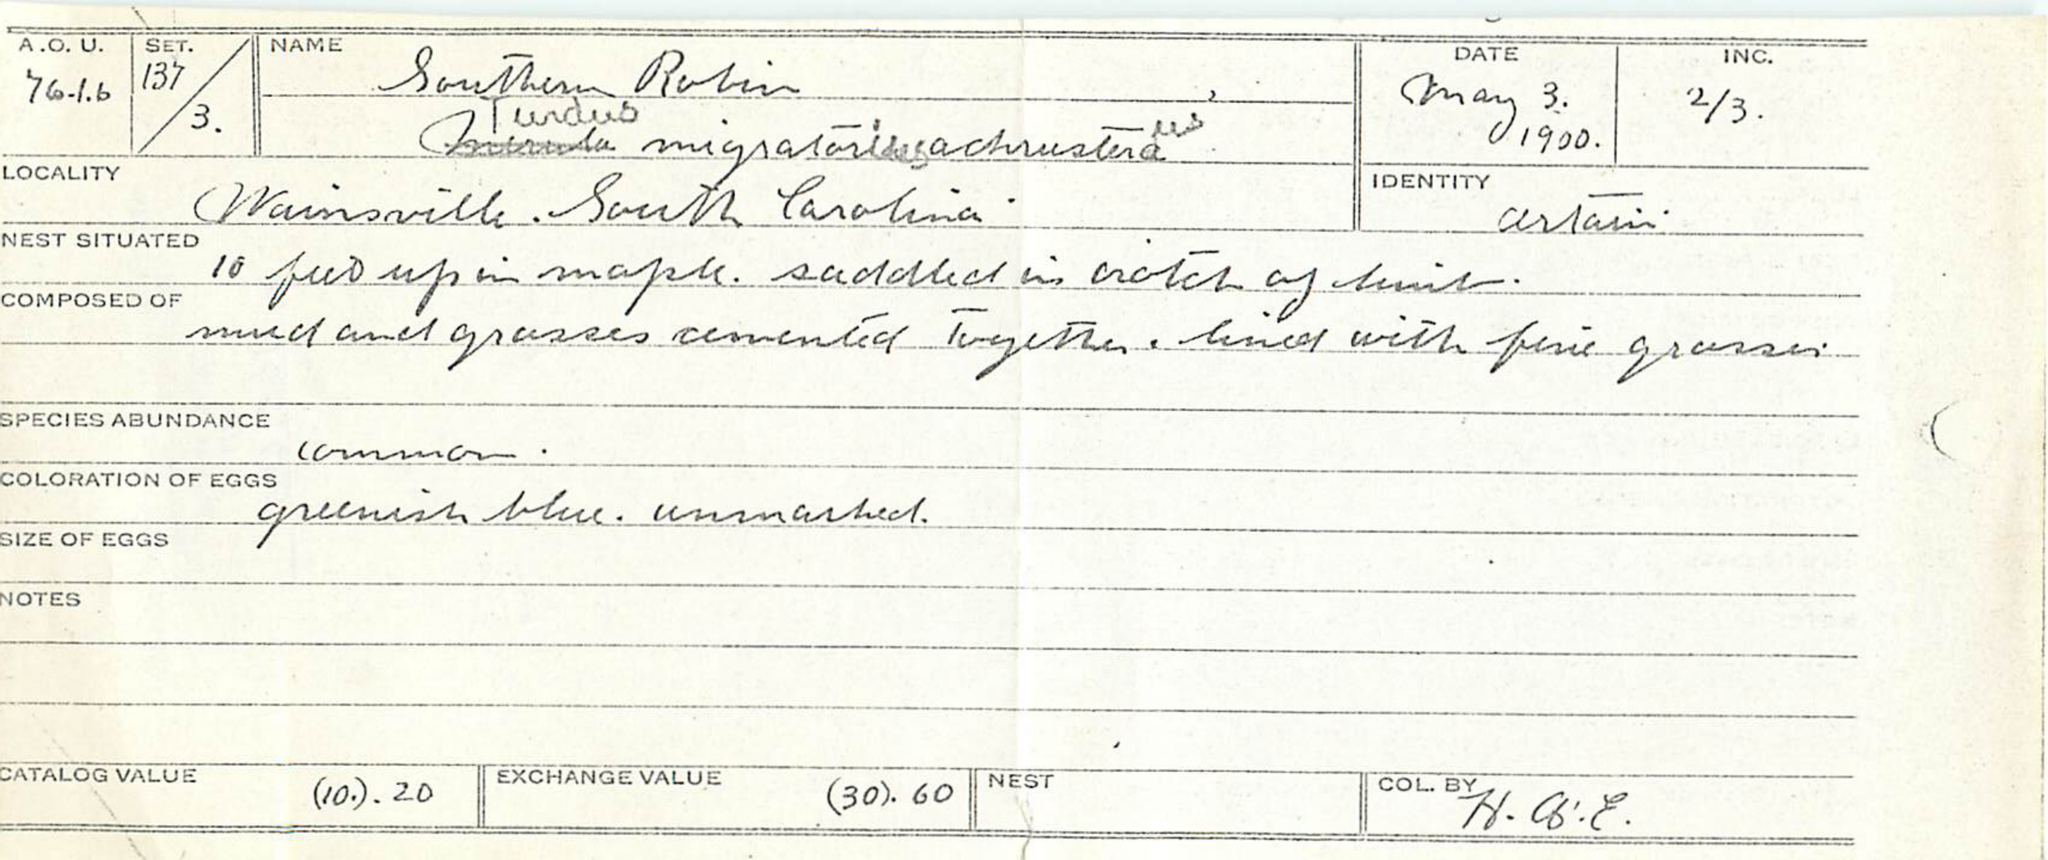 A.O.U. SET. NAME DATE INC.
76-1.b 137/3. Southern Robin, May 3. 1900. 2/3.
Turdus
Merula migratorius achrusterus
LOCALITY IDENTITY
Wainsville. South Carolina. certain.
NEST SITUATED
10 feet up in maple. saddled in crotch of limb.
COMPOSED OF
mud and grasses cemented together. lined with fine grasses
SPECIES ABUNDANCE
common.
COLORATION OF EGGS
greenish blue. unmarked.
SIZE OF EGGS
NOTES
CATALOG VALUE (10.). 20 EXCHANGE VALUE (30). 60 NEST COL. BY H.